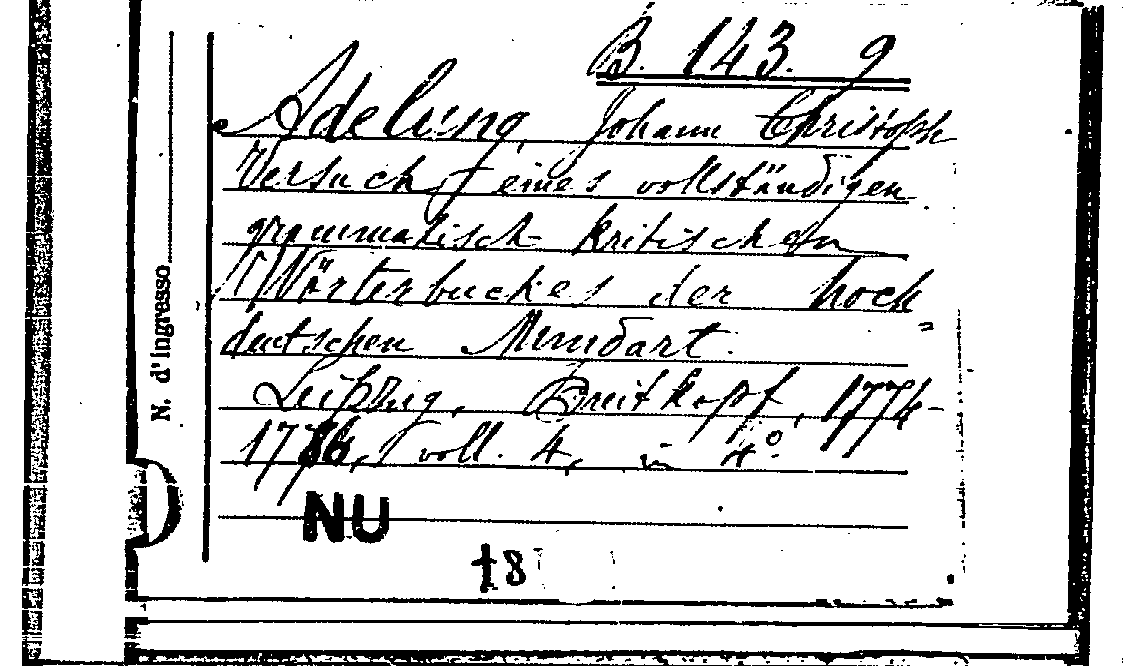 B. 143. 9
Adelung, Johann Christoph
Versuch eines vollständigen
grammatisch kritischen
Wörterbuches der hoch=
deutschen Mundart.
Leipzig, Breitkopf, 1774-
1786, voll. 4, in 4º.
NU
N. d'ingresso
‡8